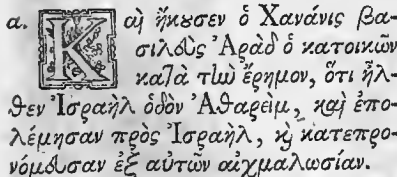 α. Καὶ ἤκουσεν ὁ Χανάνις βα-
σιλεὺς Ἀρὰδ ὁ κατοικῶν
κατὰ τὴν ἔρημον, ὅτι ἦλ-
θεν Ἰσραὴλ ὁδὸν Ἀθαρεὶμ, καὶ ἐπο-
λέμησαν πρὸς Ἰσραὴλ, καὶ κατεπρο-
νόμευσαν ἐξ αὐτῶν αἰχμαλωσίαν.